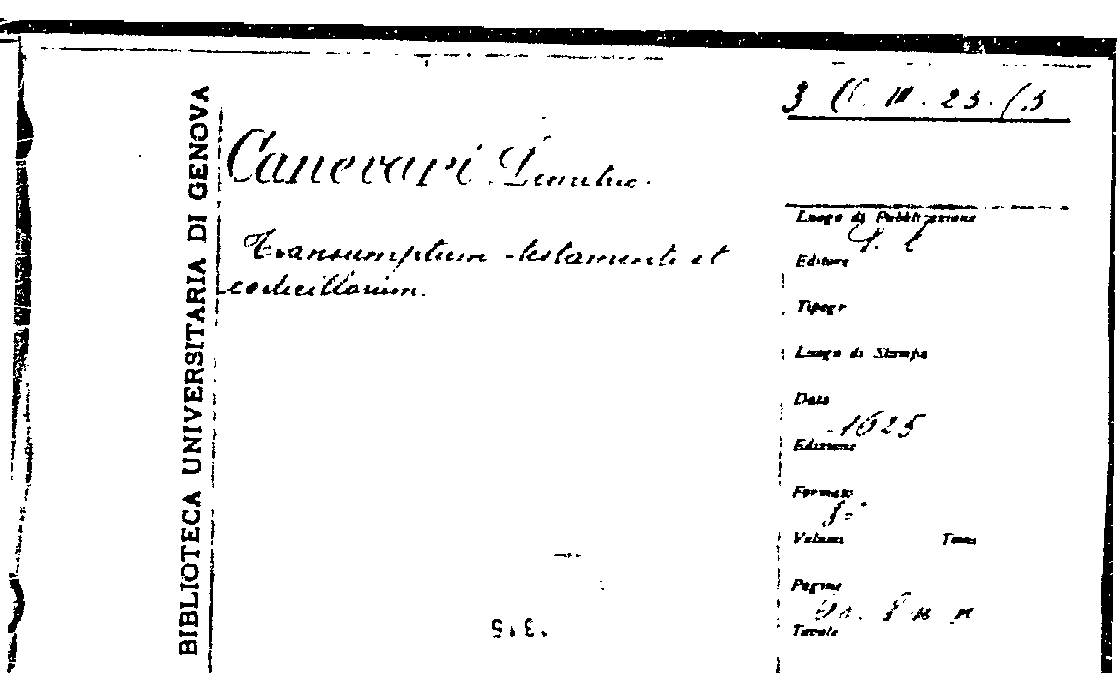 BIBLIOTECA UNIVERSITARIA DI GENOVA
Canevari Demetrio.
Transumptum testamenti et
codicillorum.
Luogo di Pubblicazione
S. l.
Editore
Tipogr
Luogo di Stampa
Data
1625
Edizione
Formato
8°
Volumi Tomi
Pagine
Tavole